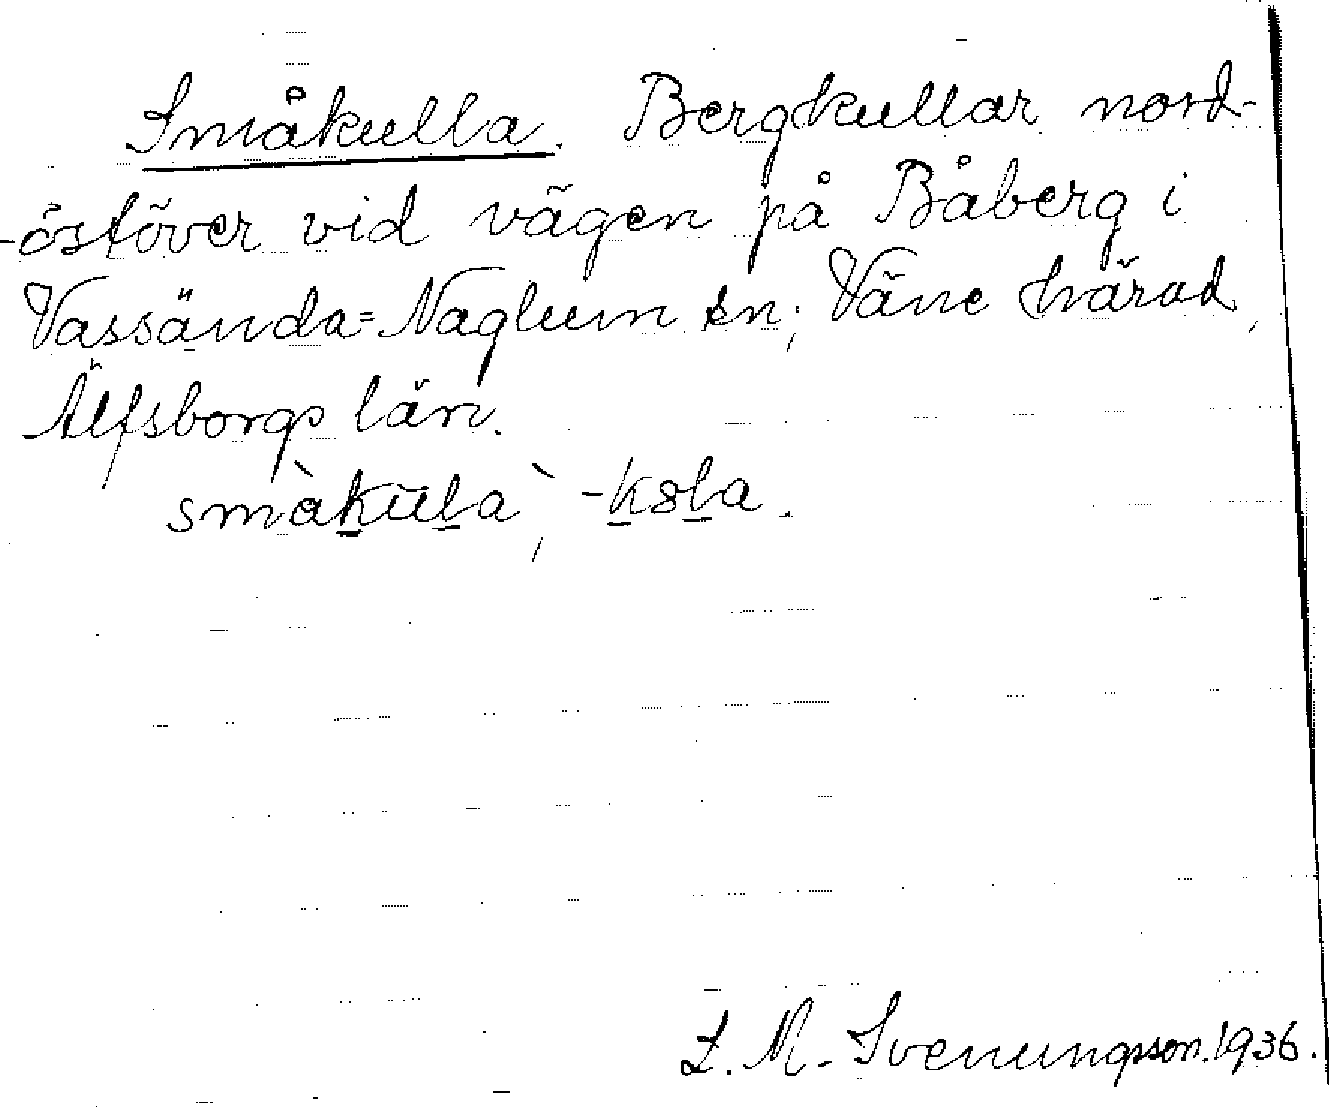 Småkulla. Bergkullar nord-
-östöver vid vägen på Båberg i
Vassända=Naglum sn; Väne härad,
Älfsborgs län.
småkula, -k8la.
L. M. Svenungsson. 1936.